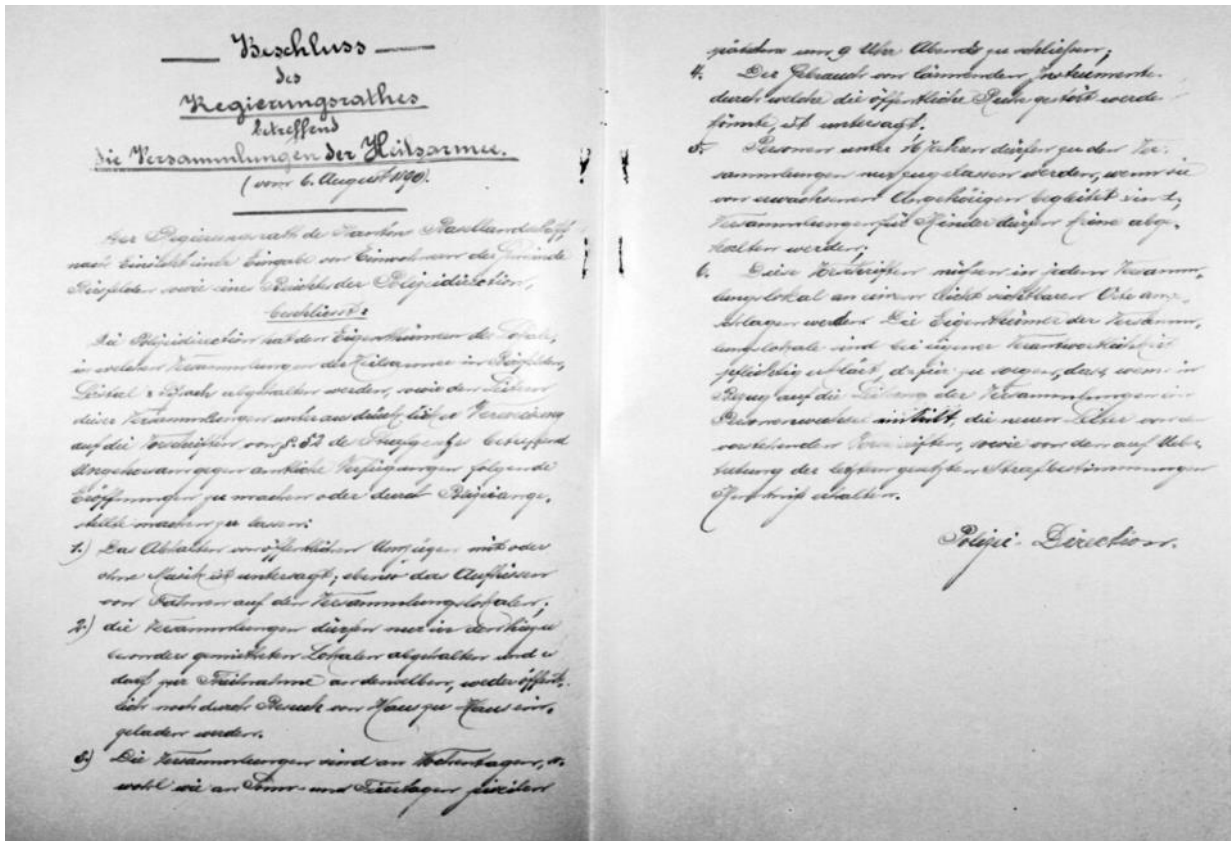 Beschluss
des
Regierungsrathes
betreffend
die Versammlungen der Heilsarmee.
(vom 6. August 1890).
Der Regierungsrath des Kantons Basellandschaft,
nach Einsicht einer Eingabe von Einwohnern der Gemeinde
Birsfelden sowie eines Berichts der Polizeidirection,
beschliesst:
Die Polizeidirection hat den Eigenthümern der Lokale,
in welchen Versammlungen der Heilsarmee in Birsfelden,
Liestal & Sissach abgehalten werden, sowie den Leitern
dieser Versammlungen unter ausdrücklicher Verweisung
auf die Vorschriften von § 52 des Strafgesetzes betreffend
Ungehorsam gegen amtliche Verfügungen folgende
Eröffnungen zu machen oder durch Polizeiange-
stellte machen zu lassen:
1.) Das Abhalten von öffentlichen Umzügen mit oder
ohne Musik ist untersagt; ebenso das Aufhissen
von Fahnen auf den Versammlungslokalen;
2.) die Versammlungen dürfen nur in den hiezu
besonders gemietheten Lokalen abgehalten und es
darf zur Theilnahme an denselben, weder öffent-
lich noch durch Besuch von Haus zu Haus ein-
geladen werden.
3.) Die Versammlungen sind an Werktagen, so-
wohl wie an Sonn- und Feiertagen
spätestens um 9 Uhr Abends zu schliessen;
4. Der Gebrauch von lärmenden Instrumente.
durch welche die öffentliche Ruhe gestört werde
könnte, ist untersagt.
5. Personen unter 16 Jahren dürfen zu den Ver-
sammlungen nur zugelassen werden, wenn sie
von erwachsenen Angehörigen begleitet sind;
Versammlungen für Kinder dürfen keine abge-
halten werden;
6. Diese Vorschriften müssen in jedem Versamm-
lungslokal an einem leicht sichtbaren Orte ange-
schlagen werden. Die Eigenthümer der Versamm-
lungslokale sind bei eigener Verantwortlichkeit
pflichtig erklärt, dafür zu sorgen, dass, wenn in
Bezug auf die Leitung der Versammlungen ein
Personenwechsel eintritt, die neuen Leiter von den
vorstehenden Vorschriften, sowie von den auf Ueber-
tretung der letztern gesetzten Strafbestimmungen
Kenntniss erhalten.
Polizei-Direction.